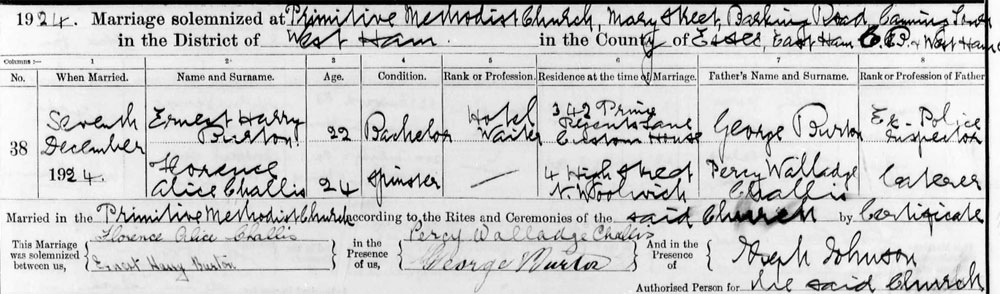 1924. Marriage solemnized at Primitive Methodist Church, Mary Street, Barking Road, Canning Town
in the District of West Ham in the County of Essex, East Ham C.B. & West Ham
Columns :— 1 2 3 4 5 6 7 8
No. When Married. Name and Surname. Age. Condition. Rank or Profession. Residence at the time of Marriage. Father's Name and Surname. Rank or Profession of Father
38 Seventh December 1924. Ernest Harry Burton 22 Bachelor Hotel Waiter 342 Prince Regents Lane Custom House George Burton Ex-Police Inspector
Florence Alice Challis 24 Spinster — 4 High Street N. Woolwich Percy Walladge Challis Caterer
Married in the Primitive Methodist Church according to the Rites and Ceremonies of the said Church by Certificate
This Marriage was solemnized between us, Florence Alice Challis Ernest Harry Burton in the Presence of us, Percy Walladge Challis George Burton And in the Presence of Joseph Johnson
Authorised Person for the said Church